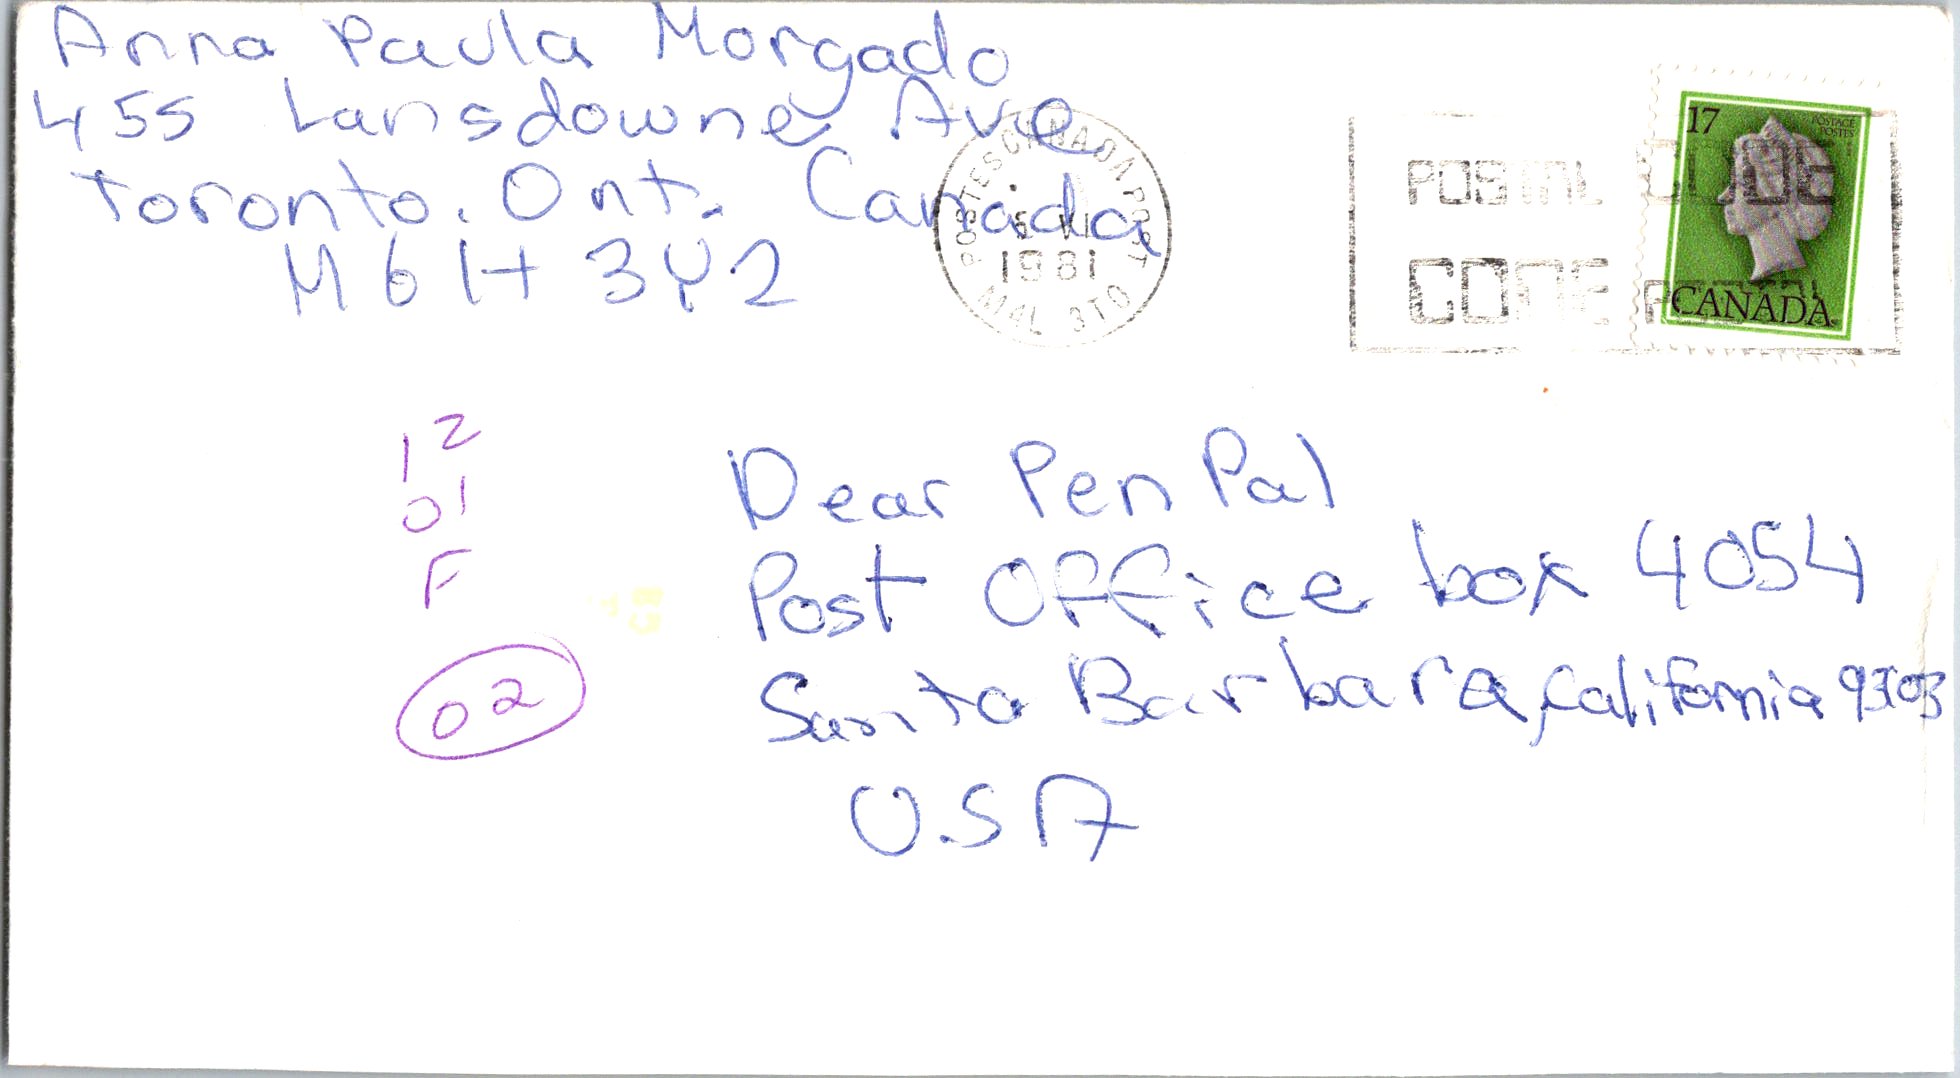 Anna Paula Morgado
455 Lansdowne Ave
Toronto. Ont. Canada
M6H 3Y2
POSTES CANADA POST
5 VI
1981
M4L 3T0
POSTAL CODE
CODE POSTAL
17
POSTAGE
POSTES
CANADA
12
01
F
02
Dear Pen Pal
Post Office box 4054
Santa Barbara, California 93103
U.SA